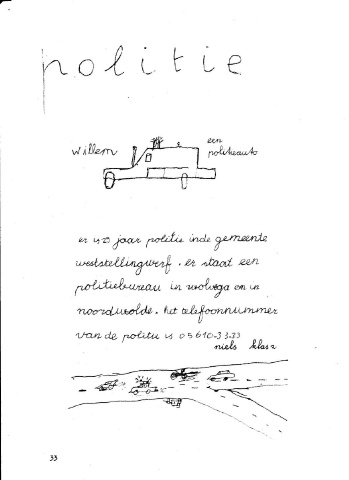 politie
willem
een
politieauto
er is jaar politie inde gemeente
weststellingwerf. er staat een
politiebureau in wolvega en in
noordwolde. het telefoonnummer
van de politie is 05610-3333
niels klas 2
33